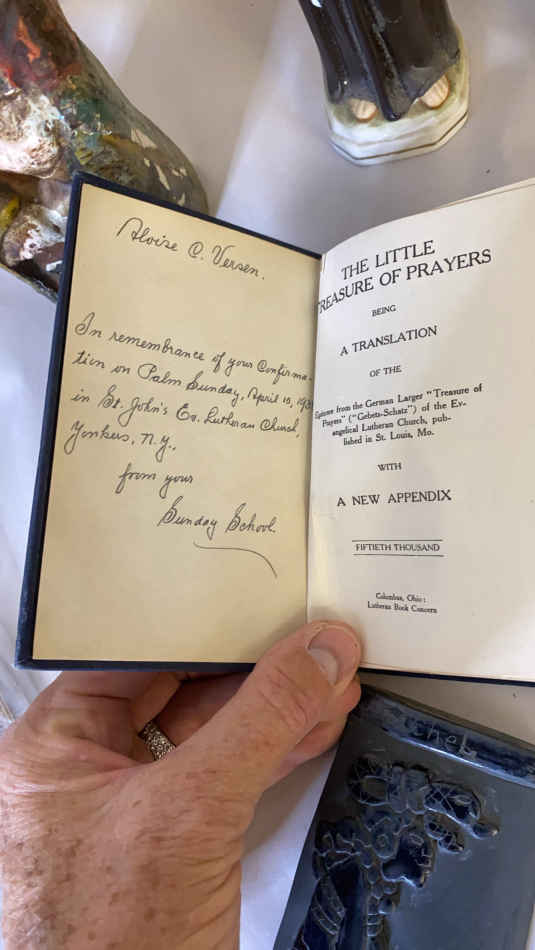 Aloise C. Versen.
In remembrance of your Confirma-
tion on Palm Sunday, April 10,
in St. John's Ev. Lutheran Church,
Yonkers, N.Y.,
from your
Sunday School.
THE LITTLE
TREASURE OF PRAYERS
BEING
A TRANSLATION
OF THE
Epitome from the German Larger "Treasure of
Prayers" ("Gebets-Schatz") of the Ev-
angelical Lutheran Church, pub-
lished in St. Louis, Mo.
WITH
A NEW APPENDIX
FIFTIETH THOUSAND
Columbus, Ohio:
Lutheran Book Concern